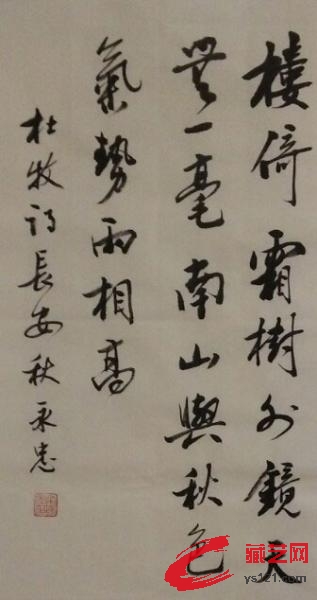 樓倚霜樹外鏡天
無一毫南山與秋色
氣勢兩相高
杜牧詩長安秋永忠
藏艺网
ys121.com